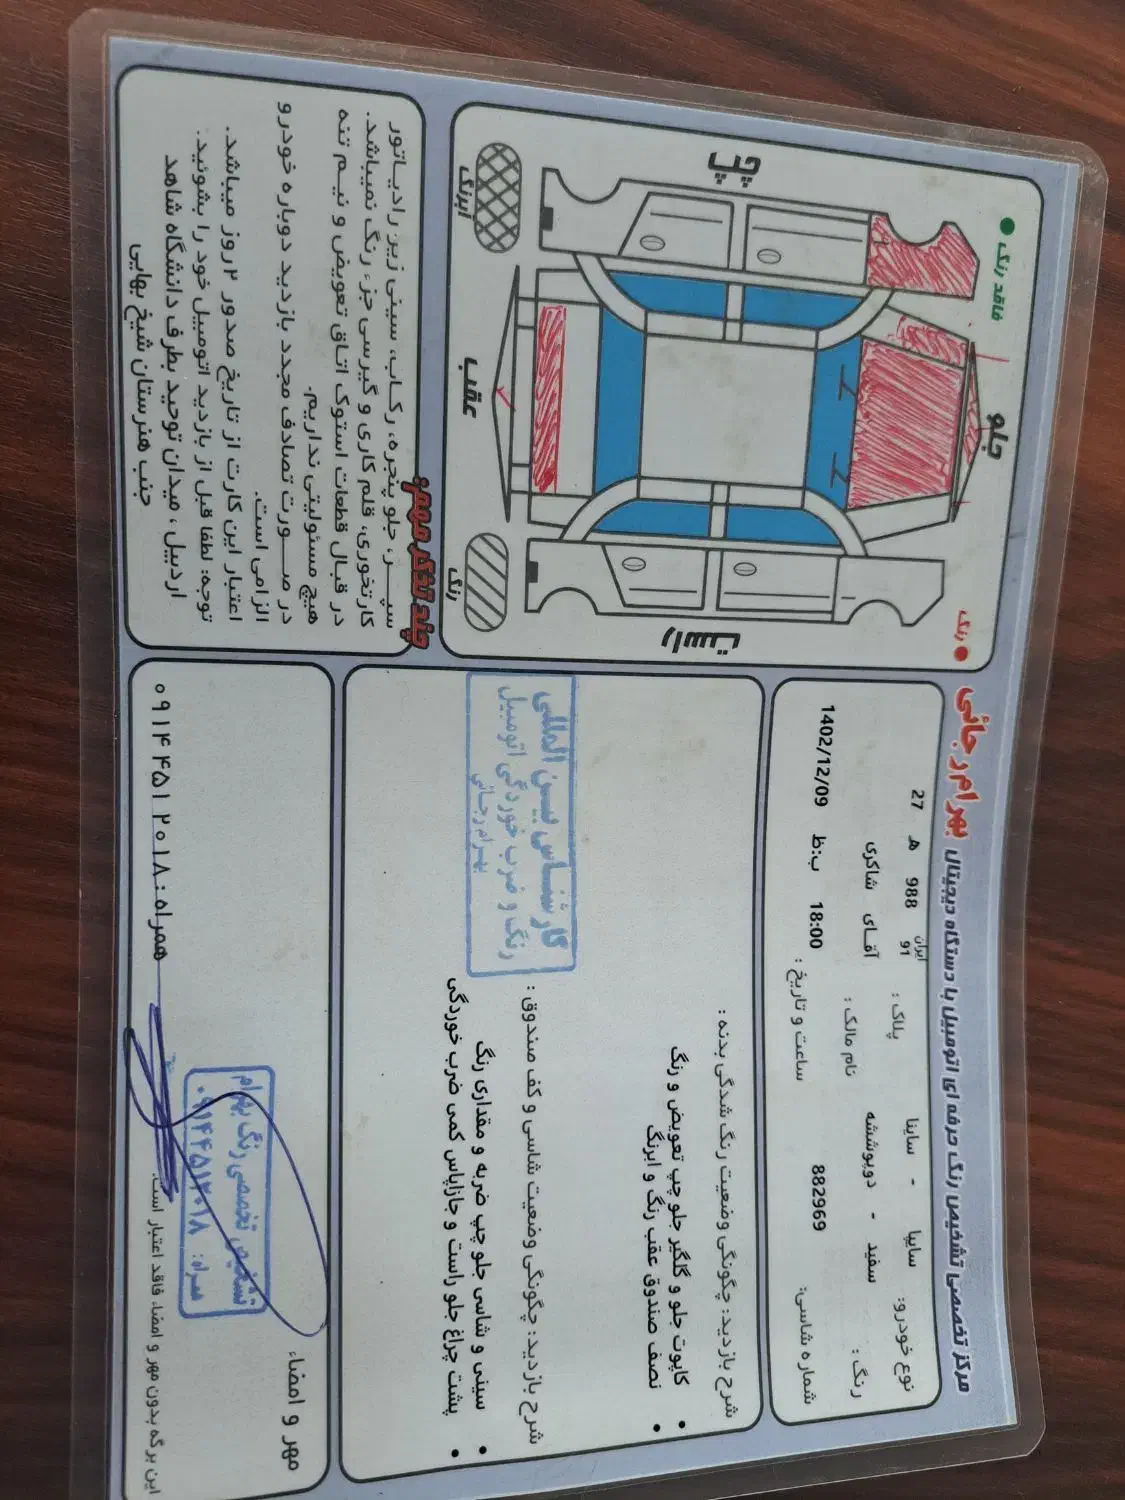 مرکز تخصصی تشخیص رنگ حرفه ای اتومبیل با دستگاه دیجیتال بهرام رجائی
نوع خودرو: سایپا - ساینا
پلاک: ایران 91 988 ه 27
رنگ: سفید - دوپوششه
نام مالک: آقای شاکری
شماره شاسی: 882969
ساعت و تاریخ: 18:00 ب:ظ 1402/12/09
شرح بازدید: چگونگی وضعیت رنگ شدگی بدنه:
• کاپوت جلو و گلگیر جلو چپ تعویض و رنگ
• نصف صندوق عقب رنگ و ابرنگ
شرح بازدید: چگونگی وضعیت شاسی و کف صندوق:
• سینی و شاسی جلو چپ ضربه و مقداری رنگ
• پشت چراغ جلو راست و جازاپاس کمی ضرب خوردگی
کارشناس بین المللی
رنگ و ضرب خوردگی اتومبیل
بهرام رجائی
مهر و امضاء
تشخیص تخصصی رنگ بهرام
همراه: ۰۹۱۴۴۵۱۲۰۱۸
همراه: ۰۹۱۴۴۵۱۲۰۱۸
این برگه بدون مهر و امضاء فاقد اعتبار است.
رنگ
فاقد رنگ
جلو
راست
چپ
عقب
رنگ
ابرنگ
چند تذکر مهم:
سپر، جلو پنجره، رکاب، سینی زیر رادیاتور
کارتخوری، قلم کاری و گیرسی جزء رنگ نمیباشد.
در قبال قطعات استوک اتاق تعویض و نیم تنه
هیچ مسئولیتی نداریم.
در صورت تصادف مجدد بازدید دوباره خودرو
الزامی است.
اعتبار این کارت از تاریخ صدور ۲ روز میباشد.
توجه: لطفا قبل از بازدید اتومبیل خود را بشوئید.
اردبیل، میدان توحید بطرف دانشگاه شاهد
جنب هنرستان شیخ بهایی